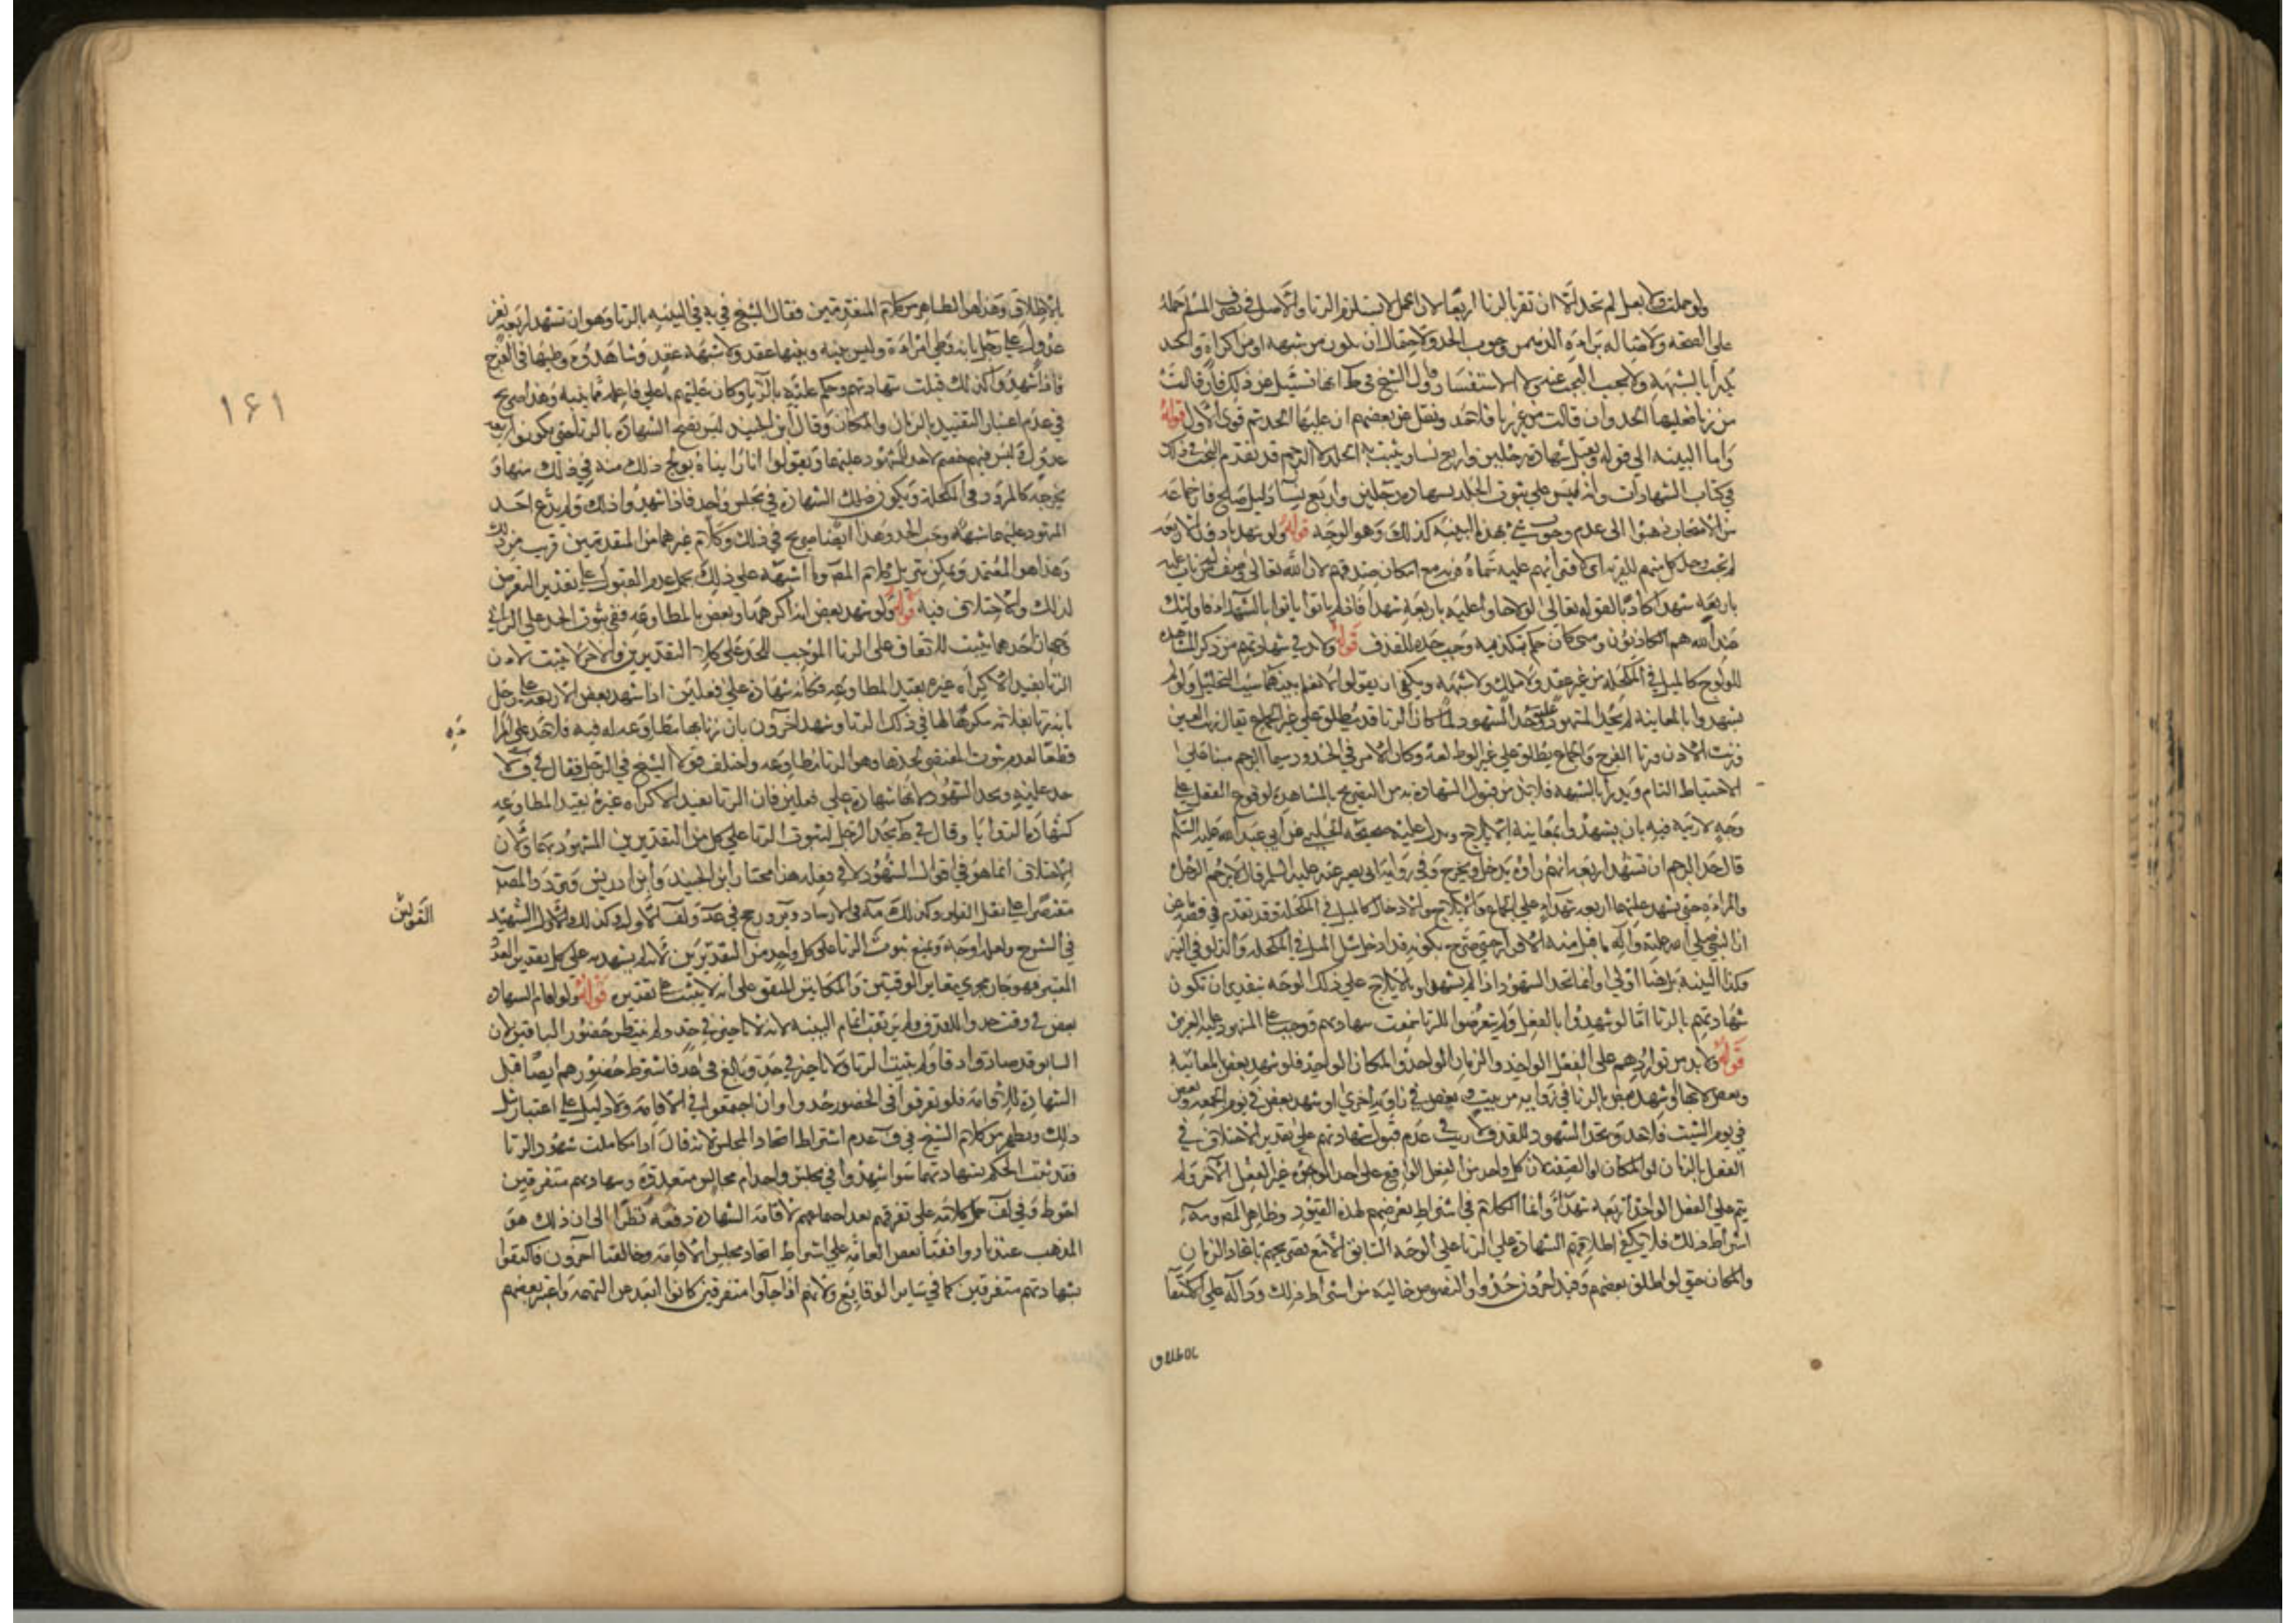 ولو حملت ولا بعل لم تحد الا ان تقر بالزنا اربعا لان الحمل لا يستلزم الزنا والاصل في تصرف المسلم حمله
على الصحة ولاصالة براءة الذمة من وجوب الحد ولاحتمال ان يكون من شبهة او من اكراه والحد
يدرأ بالشبهة ولا يجب البحث عنه ولا الاستفسار وقول الشيخ في ط انها تسئل عن ذلك فان قالت
من زنا فعليها الحد وان قالت من غير زنا فلا حد ونقل عن بعضهم ان عليها الحد ثم قوى الاول قوله
واما البينة الى قوله ويقبل شهادة رجلين واربع نساء ويثبت به الجلد لا الرجم قد تقدم البحث في ذلك
في كتاب الشهادات وانه ليس على ثبوت الجلد بشهادة رجلين واربع نساء دليل صالح فان جماعة
من الاصحاب ذهبوا الى عدم وجوب شيء بهذه البينة كذلك وهو الوجه قوله ولو شهد ما دون الاربعة
لم يجب وحد كل منهم للفرية اي لافترائهم عليه شماه فرية مع امكان صدقهم لان الله تعالى وصف من لم يات عليه
باربعة شهداء كاذبا لقوله تعالى لولا جاؤا عليه باربعة شهداء فاذ لم ياتوا بالشهداء فاولئك
عند الله هم الكاذبون ومتى كان حكم بتكذيبه وجب حده للقذف قوله ولا بد في شهادتهم من ذكر المشاهدة
للولوج كالميل في المكحلة من غير عقد ولا ملك ولا شبهة ويكفي ان يقولوا لا نعلم بينهما سبب التحليل ولو لم
يشهدوا بالمعاينة لم يحد المشهود عليه وحد الشهود لما كان الزنا قد يطلق على غير الجماع يقال زنت العين
وزنت الاذن وزنا الفرج والجماع يطلق على غير الوطء لغة وكان الامر في الحدود سيما الرجم مبنيا على
الاحتياط التام ويدرأ بالشبهة فلا بد من قبول الشهادة به من التصريح بالمشاهدة لوقوع الفعل على
وجه لا ريبة فيه بان يشهدوا بمعاينة الايلاج ويدل عليه صحيحة الحلبي عن ابي عبد الله عليه السلم
قال حد الرجم ان تشهد اربعة انهم راوه يدخل ويخرج وفي رواية ابي بصير عنه عليه السلم قال لا يرجم الرجل
والمراة حتى يشهد عليهما اربعة شهداء على الجماع والايلاج والادخال كالميل في المكحلة وقد تقدم في قصة ماعز
ان النبي صلى الله عليه وآله ما قبل منه الاقرار حتى صرح بكونه قد ادخل مثل الميل في المكحلة والدلو في البئر
فكذا البينة به ايضا اولى وانما تحد الشهود اذا لم يشهدوا بالايلاج على ذلك الوجه بتقدير ان تكون
شهادتهم بالزنا اما لو شهدوا بالفعل ولم يتعرضوا للزنا سمعت شهادتهم ووجب على المشهود عليه التعزير
قوله ولا بد من تواردهم على الفعل الواحد والزمان الواحد والمكان الواحد فلو شهد بعض المعاينة
وبعض لا بها او شهد بعض بالزنا في زاوية من بيت وبعض في زاوية اخرى او شهد بعض في يوم الجمعة وبعض
في يوم السبت فلا حد ويحد الشهود للقذف لا ريب في عدم قبول شهادتهم على تقدير الاختلاف في
الفعل بالزمان او المكان او الصفة لان كل واحد من الفعل الواقع على احد الوجوه غير الفعل الآخر ولم
يتم على الفعل الواحد اربعة شهداء وانما الكلام في اشتراط تعرضهم لهذه القيود وظاهر المصـ وسـ
اشتراط ذلك فلا يكفي اطلاقهم الشهادة على الزنا على الوجه السابق الا مع تصريحهم باتحاد الزمان
والمكان حتى لو اطلق بعضهم وقيد اخرون حدوا والنصوص خالية من اشتراط ذلك ودالة على الاكتفا
بالاطلاق
١٦١
بالاطلاق وهذا هو الظاهر من كلام المتقدمين فقال الشيخ في يه في البينة بالزنا وهو ان تشهد اربعة نفر
عدول على رجل بانه وطئ امراة وليس بينه وبينها عقد ولا شبهة عقد وشاهدوه وطيها في الفرج
فاذا شهدوا كذلك قبلت شهادتهم وحكم عليه بالزنا وكان عليهم ما على فاعله مما نبينه وهذا صريح
في عدم اعتبار التقييد بالزمان والمكان وقال ابن الجنيد ليس تصح الشهادة بالزنا حتى يكونوا اربعة
عدول وليس فيهم خصم لاحد المشهود عليهما ويقولوا انا راينا يولج ذلك منه في ذلك منها و
يخرجه كالمرود في المكحلة ويكون ذلك الشهادة في مجلس واحد فاذا شهدوا ذلك ولم يدع احد
المشهود عليهما شبهة وجب الحد وهذا ايضا صريح في ذلك وكلام غيرهما من المتقدمين قريب من ذلك
وهذا هو المعتمد ويمكن تنزيل كلام المصـ وما اشبهه على ذلك بحمل عدم القبول على تقدير التعرض
لذلك والاختلاف فيه قوله ولو شهد بعض انه اكرهها وبعض بالمطاوعة ففي ثبوت الحد على الزاني
وجهان احدهما يثبت للاتفاق على الزنا الموجب للحد على كلا التقديرين والاخر لا يثبت لان
الزنا بقيد الاكراه غيره بقيد المطاوعة فكانه شهادة على فعلين اذا شهد بعض الاربعة على رجل
بانه زنا بفلانة مكرها لها في ذلك الزنا وشهد اخرون بان زنا بها مطاوعة له فيه فلا حد على المرا
ة
قطعا لعدم ثبوت المقتضي لحدها وهو الزنا مطاوعة واختلف قولا الشيخ في الرجل فقال في ف لا
حد عليه ويحد الشهود لانها شهادة على فعلين فان الزنا بقيد الاكراه غيره بقيد المطاوعة
كشهادة الزوايا وقال في ط يحد الرجل لثبوت الزنا على كل من التقديرين المشهود بهما ولان
الاختلاف انما هو في اقوال الشهود لا في فعله هذا مختار ابن الجنيد وابن ادريس وتردد المصـ
مقتصرا على نقل القولين وكذلك مة في الارشاد وير ورجح في عد ولف الاول وكذلك الاول الشهيد
القولين
في الشرح ولعله اوجه ويمنع ثبوت الزنا على كل واحد من التقديرين لانه لم يشهد به على كل تقدير العدد
المعتبر فهو جار مجرى تغاير الوقتين والمكانين المتفق على انه لا يثبت على تقديره قوله ولو اقام الشهادة
بعض في وقت حدوا للقذف ولم يرتقب اتمام البينة لانه لا تاخير في حد ولم ينتظر حضور الباقين لان
السابق قد صار قاذفا ولم يثبت الزنا ولا تاخير في حد وبالغ في عد فاشترط حضورهم ايضا قبل
الشهادة للاقامة فلو تفرقوا في الحضور حدوا وان اجتمعوا في الاقامة ولا دليل على اعتبار مثل
ذلك ويظهر من كلام الشيخ في ف عدم اشتراط اتحاد المجلس لانه قال اذا تكاملت شهود الزنا
فقد ثبت الحكم بشهادتهم سواء شهدوا في مجلس واحد ام مجالس متعددة وشهادتهم متفرقين
احوط وفي لف حمل كلامه على تفرقهم بعد اجتماعهم لاقامة الشهادة دفعة نظرا الى ان ذلك هو
المذهب عندنا ووافقنا بعض العامة على اشتراط اتحاد مجلس الاقامة وخالفنا اخرون فاكتفوا
بشهادتهم متفرقين كما في ساير الوقايع ولانهم اذا جآوا متفرقين كانوا ابعد عن التهمة واعتبر بعضهم